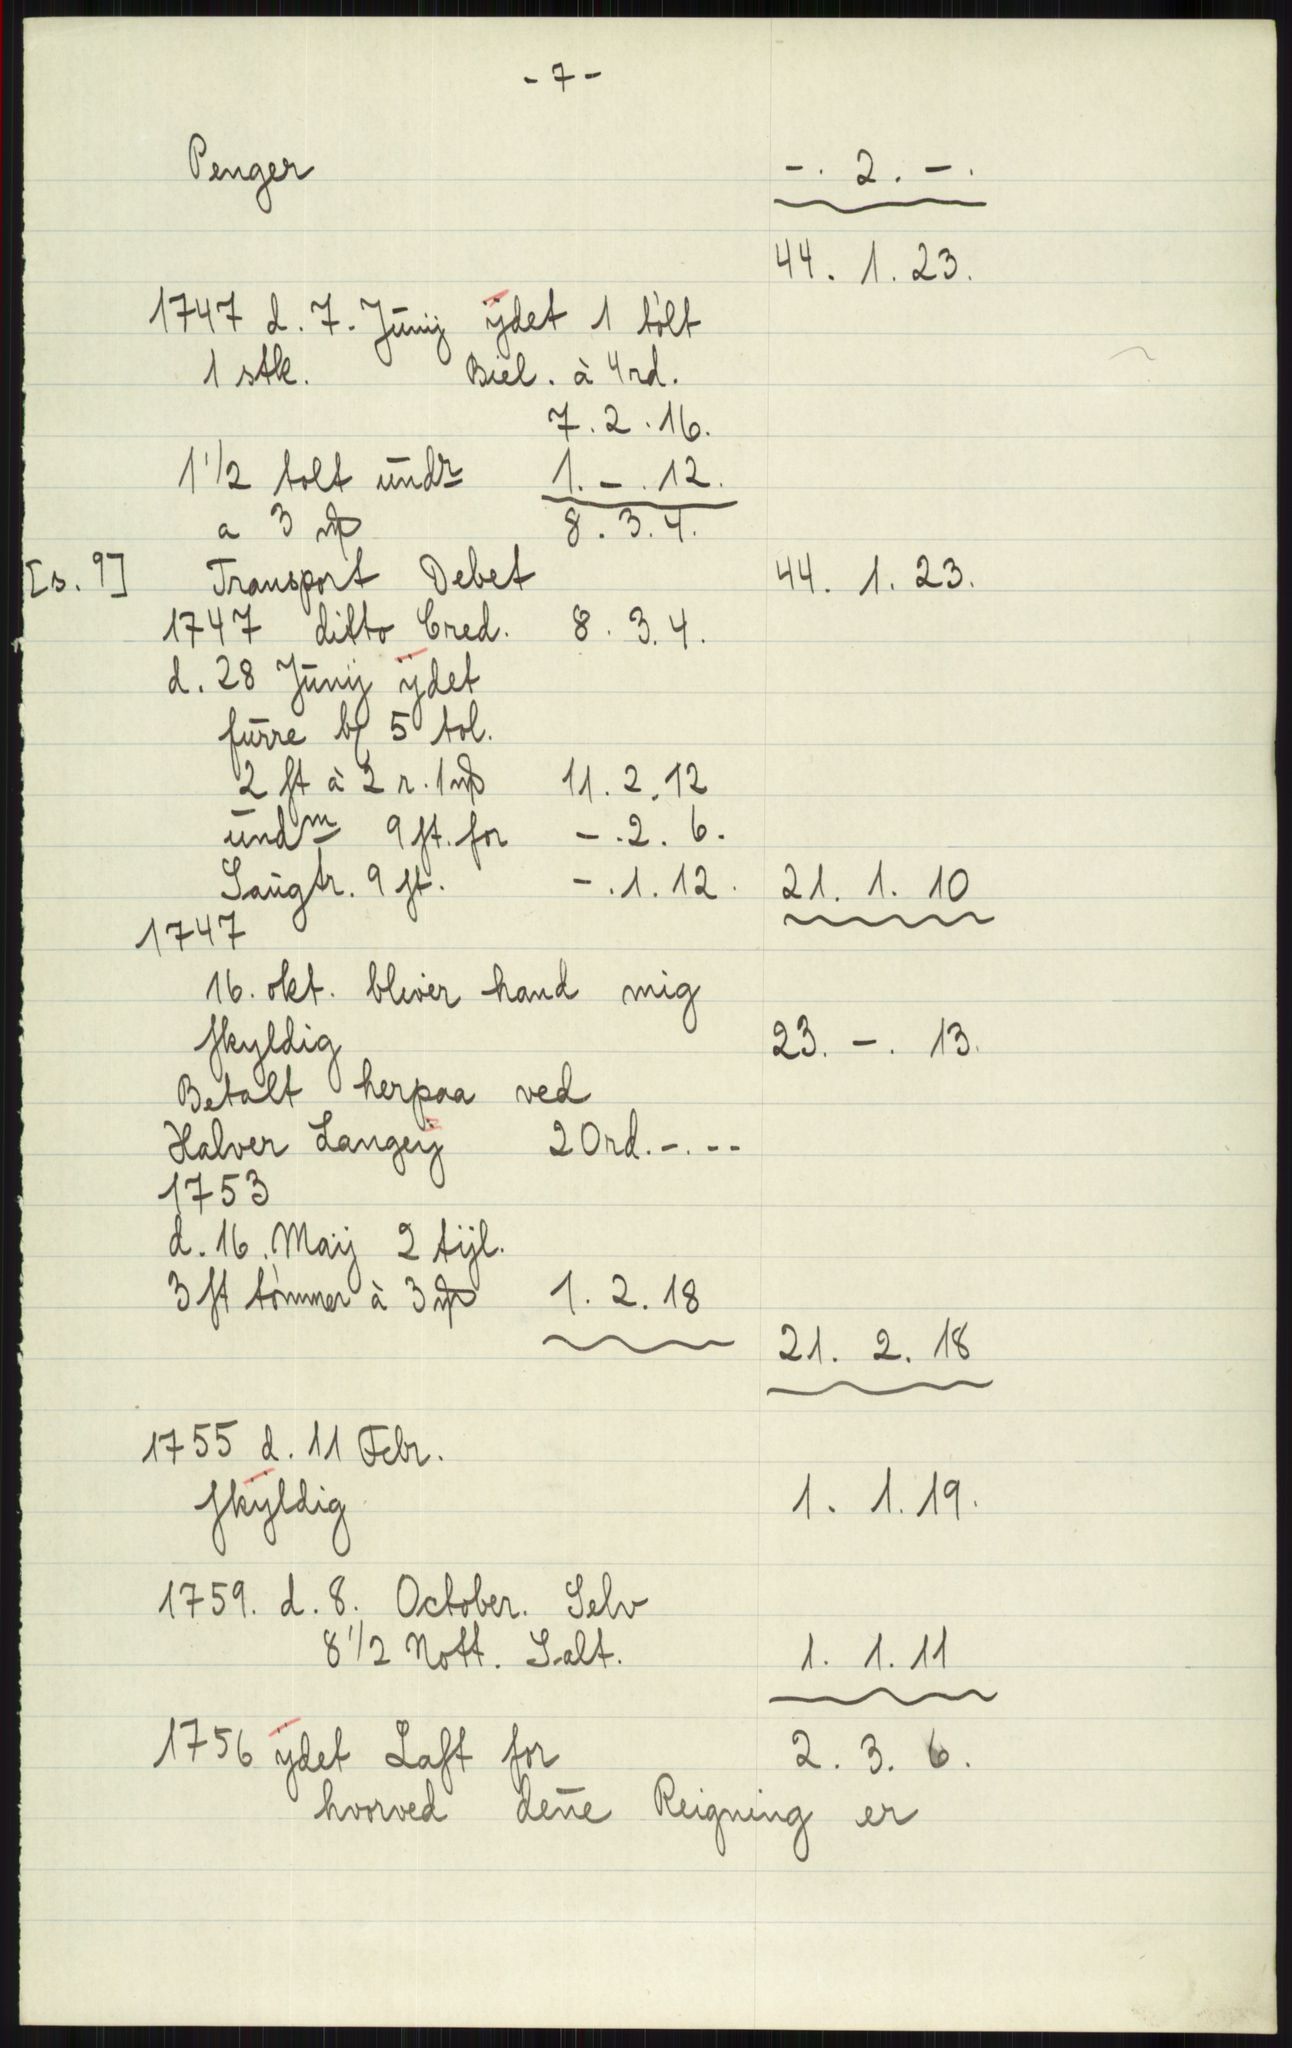 - 7 -
Penger -. 2. -.
44. 1. 23.
1747 d. 7. Jūnij ÿdet 1 tólt
1 stk. Biel. à 4rd.
7. 2. 16.
1 1/2 tolt undr 1. -. 12.
a 3 mp 8. 3. 4.
[s. 9] Transport Debet 44. 1. 23.
1747 ditto Cred. 8. 3. 4.
d. 28 Jūnij ÿdet
fūrre bj 5 tol.
2 st à 2 r. 1 mp 11. 2. 12
ūndm 9 st. for -. 2. 6.
Saugtr. 9 st. -. 1. 12. 21. 1. 10
1747
16. okt. bliver hand mig
skyldig 23. -. 13.
Betalt herpaa ved
Halver Langeÿ 20rd. -. --
1753
d. 16. Maij 2 tijl.
3 st tómmer à 3 mp 1. 2. 18
21. 2. 18
1755 d. 11 Febr.
skÿldig 1. 1. 19.
1759. d. 8. October. Selv
8 1/2 Nott. Salt. 1. 1. 11
1756 ÿdet Laft for 2. 3. 6.
hvorved dēne Reigning er